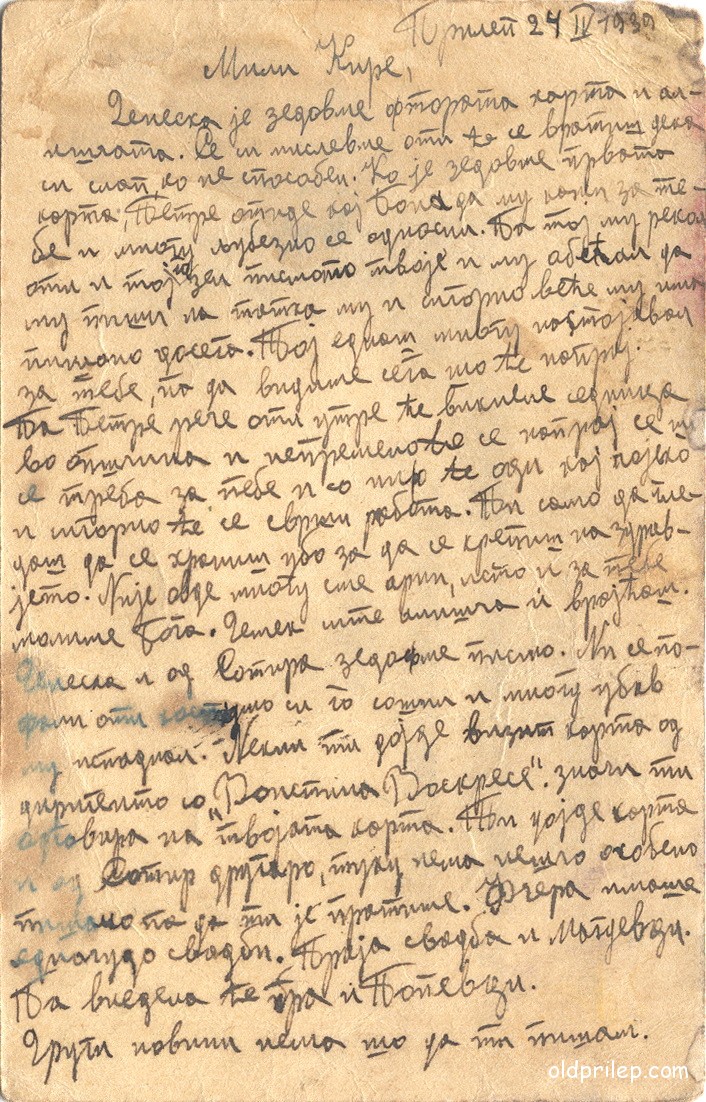 Прилеп 24 IV 1939
Мили Кире,
Денеска је зедовме фтората карта и ал-
иштата. Се си мислевме оти ќе се вратиш дека
си слап, ко не способен. Ко је зедовме првата
карта, Петре отиде кај да му кажи за те-
бе и многу љубезно се односил. Па тој му рекол
оти и тој го зел писмото твоје и му обеќал да
му пиши на татка му и сигорно веќе му има
пишано досега. Тој еднаш многу настојавал
за тебе, па да видиме сега шо ќе напраj.
Па Петре рече оти утре ќе викниме седница
во опшчина и непремено ќе се напраj се ш
се треба за тебе и со ќе оди кај појќо
и сигорно ќе се сврши работа. Ти само да гле-
даш да се храниш убо за да се крепиш на здрав-
јето. Није овде многу сме арни, исто и за тебе
молиме Бога. Денек ште и враќам.
Денеска и од Сотира зедофме писмо. Ни се по-
фали оти си го сошил и многу убав
му испаднал. Некни ти дојде визит карта од
со "Воистина Воскресе". значи ти
одговара на твојата карта. Ти дојде карта
и од Сотир другаро, туку нема нешчо особено
пишано па да ти је пратиме. Фчера имаше
едно чудо свадби. Праја свадба и Могдевци.
Па в недела ќе пра и Попевци.
Други новини нема шо да ти пишам.
oldprilep.com